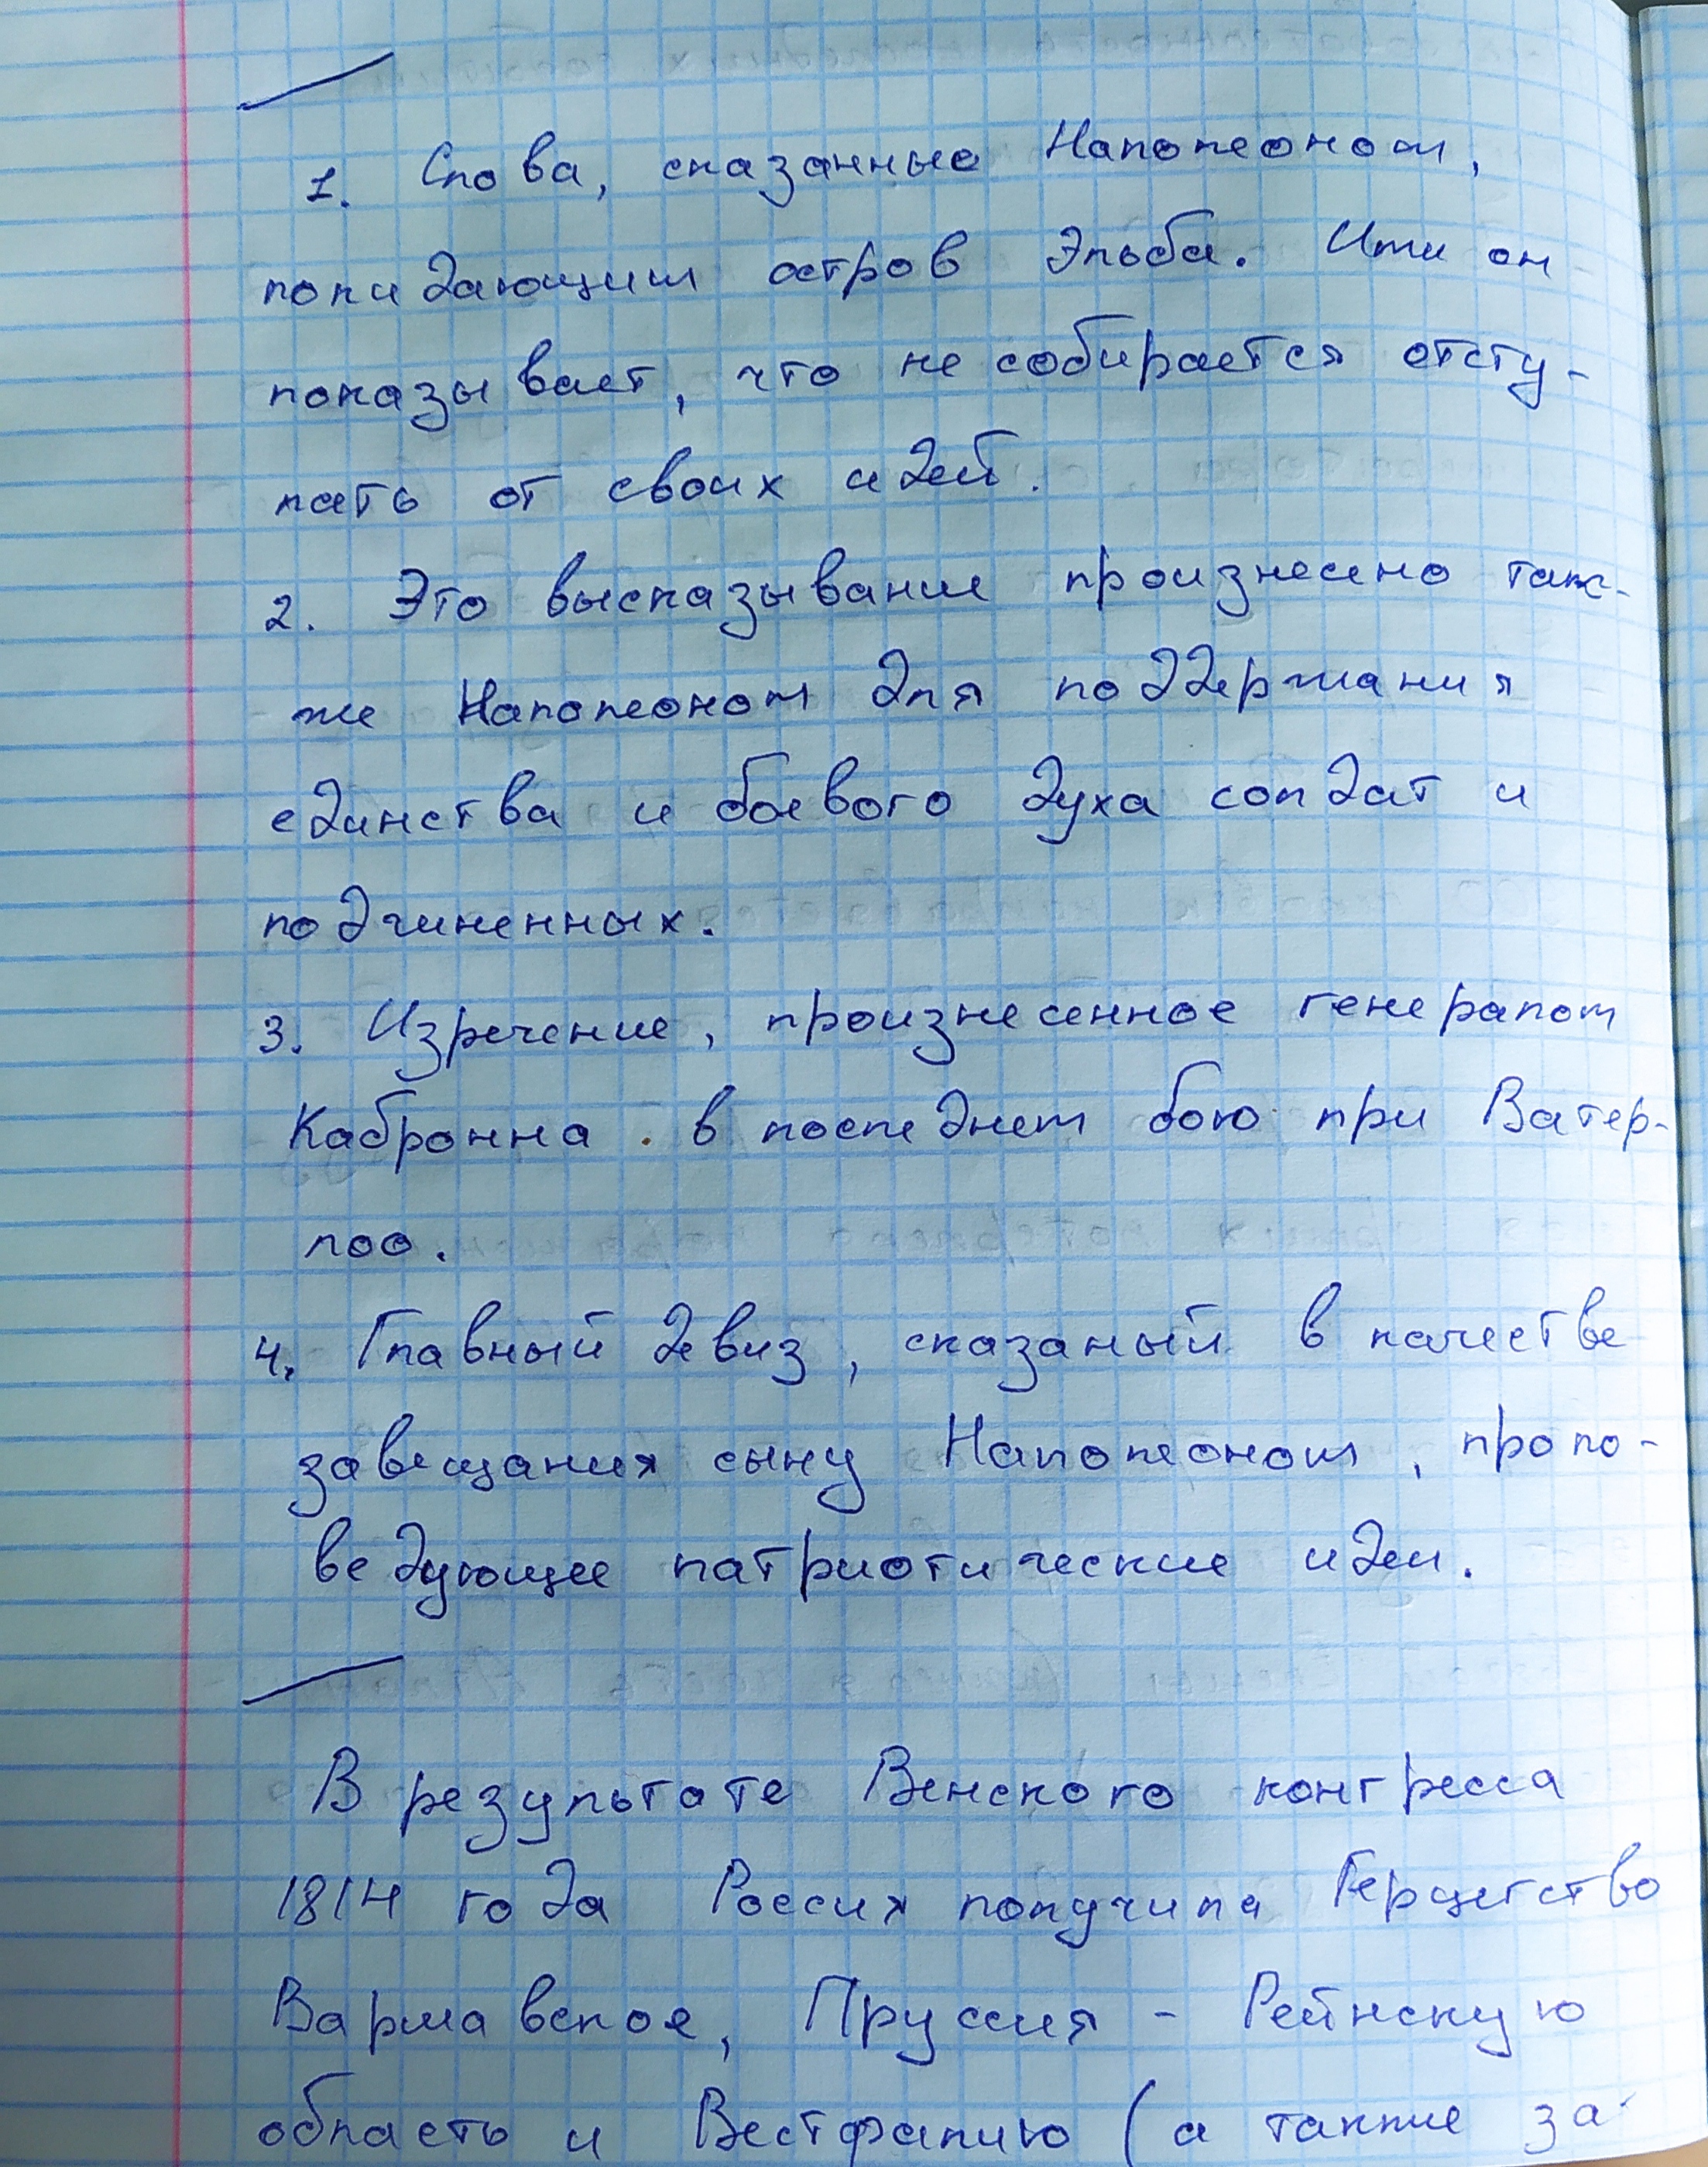 1. Слова, сказанные Наполеоном,
покидающим остров Эльба. Ими он
показывает, что не собирается отсту-
пать от своих идей.
2. Это высказывание произнесено так-
же Наполеоном для поддержания
единства и боевого духа солдат и
подчиненных.
3. Изречение, произнесенное генералом
Кабронна в последнем бою при Ватер-
лоо.
4. Главный девиз, сказаный в качестве
завещания сыну Наполеоном, пропо-
ведующее патриотические идеи.
В результате Венского конгресса
1814 года Россия получила Герцегство
Варшавское, Пруссия - Рейнскую
область и Вестфалию (а также за